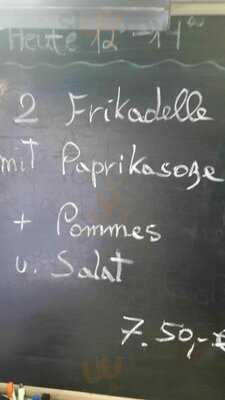 Heute 12°° - 14°°
2 Frikadelle
mit Paprikasoße
+ Pommes
u. Salat
7.50,-€